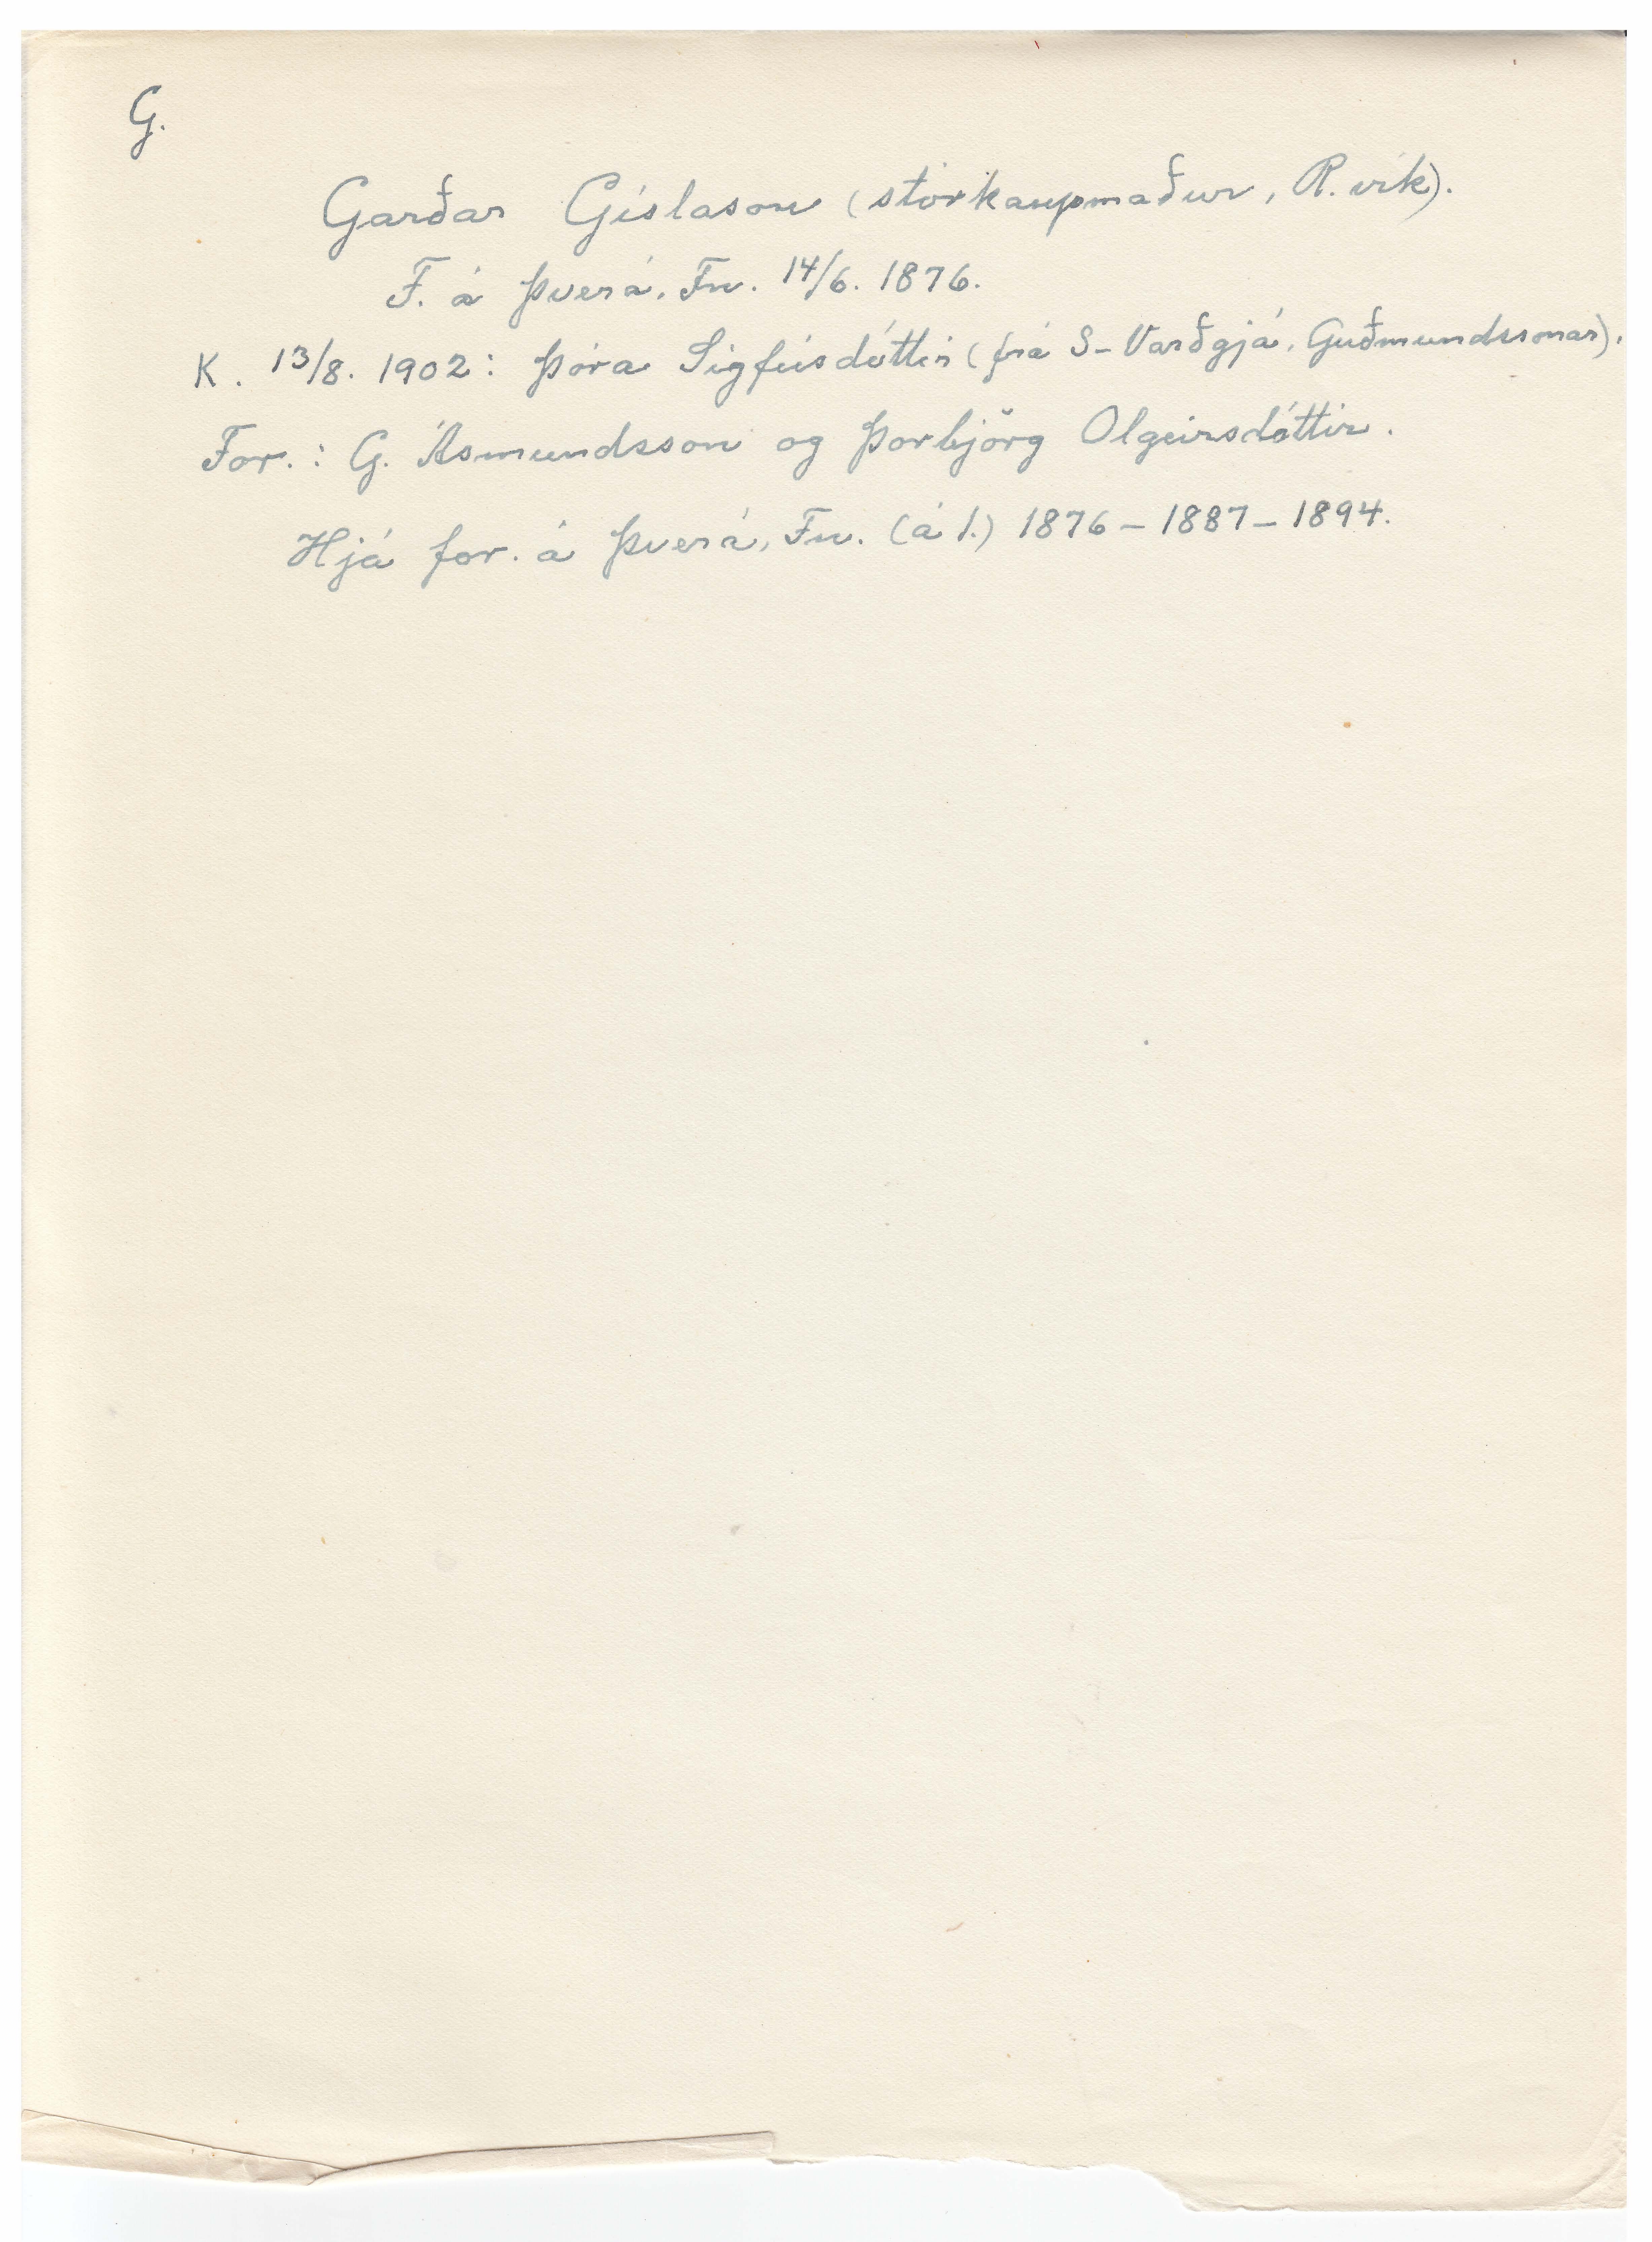 G.
Garðar Gíslason (stórkaupmaður, R.vík).
F. á Þverá, Fn. 14/6. 1876.
K. 13/8. 1902: Þóra Sigfúsdóttir (frá S-Varðgjá, Guðmundssonar).
For.: G. Ásmundsson og Þorbjörg Olgeirsdóttir.
Hjá for. á Þverá, Fn. (á 1.) 1876 - 1887 - 1894.